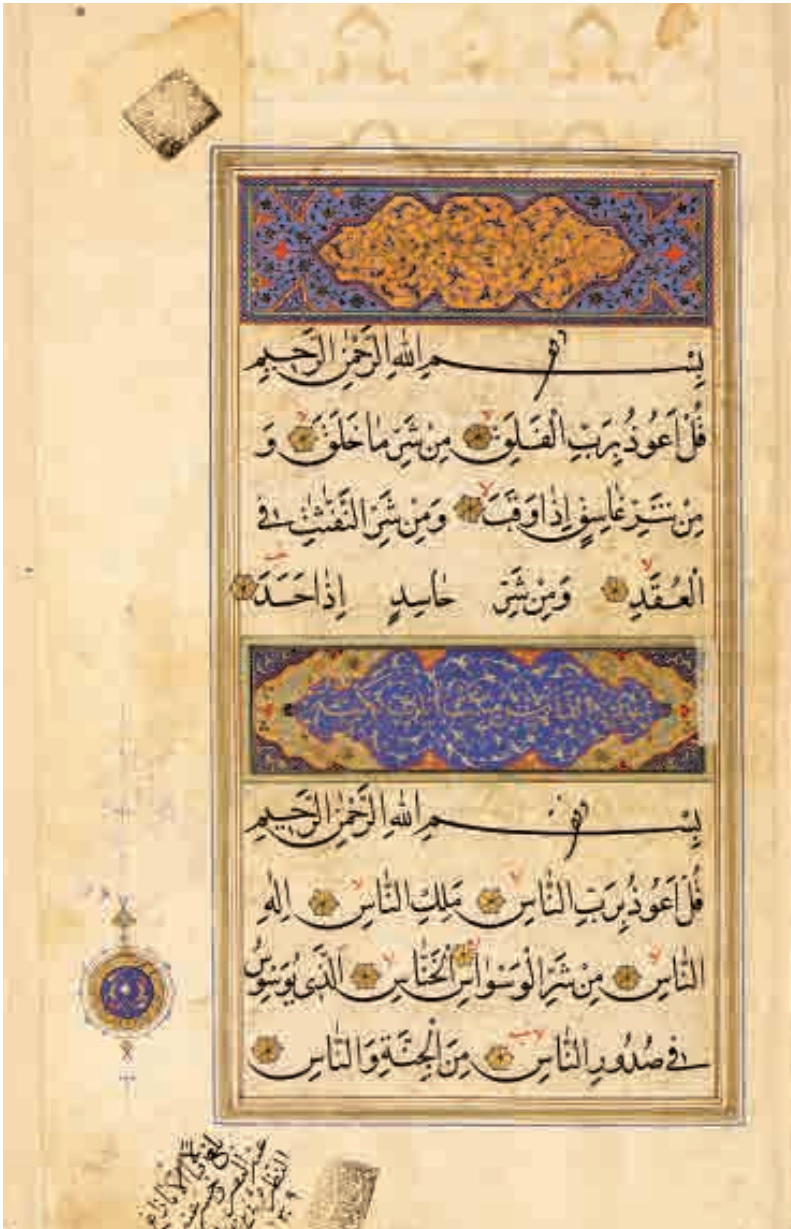 وقف
بِسْمِ اللّٰهِ الرَّحْمٰنِ الرَّحِيمِ
قُلْ اَعُوذُ بِرَبِّ الْفَلَقِ مِنْ شَرِّ مٰا خَلَقَ وَ
مِنْ شَرِّ غٰاسِقٍ اِذٰا وَقَبَ وَمِنْ شَرِّ النَّفّٰثٰتِ فِى
الْعُقَدِ وَمِنْ شَرِّ حٰاسِدٍ اِذٰا حَسَدَ
وقف
بِسْمِ اللّٰهِ الرَّحْمٰنِ الرَّحِيمِ
قُلْ اَعُوذُ بِرَبِّ النّٰاسِ مَلِكِ النّٰاسِ اِلٰهِ
النّٰاسِ مِنْ شَرِّ الْوَسْوٰاسِ الْخَنّٰاسِ اَلَّذِى يُوَسْوِسُ
فِى صُدُورِ النّٰاسِ مِنَ الْجِنَّةِ وَالنّٰاسِ